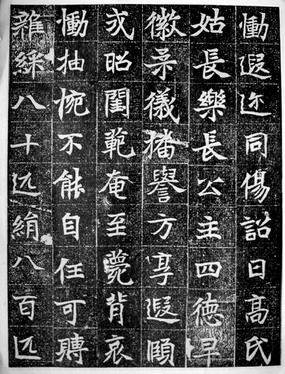 慟遐迩同傷詔曰高氏
姑長樂長公主四德早
徽柔儀播譽方享遐頤
式昭閨範奄至薨背哀
慟抽惋不能自任可賻
雜綵八十匹絹八百匹